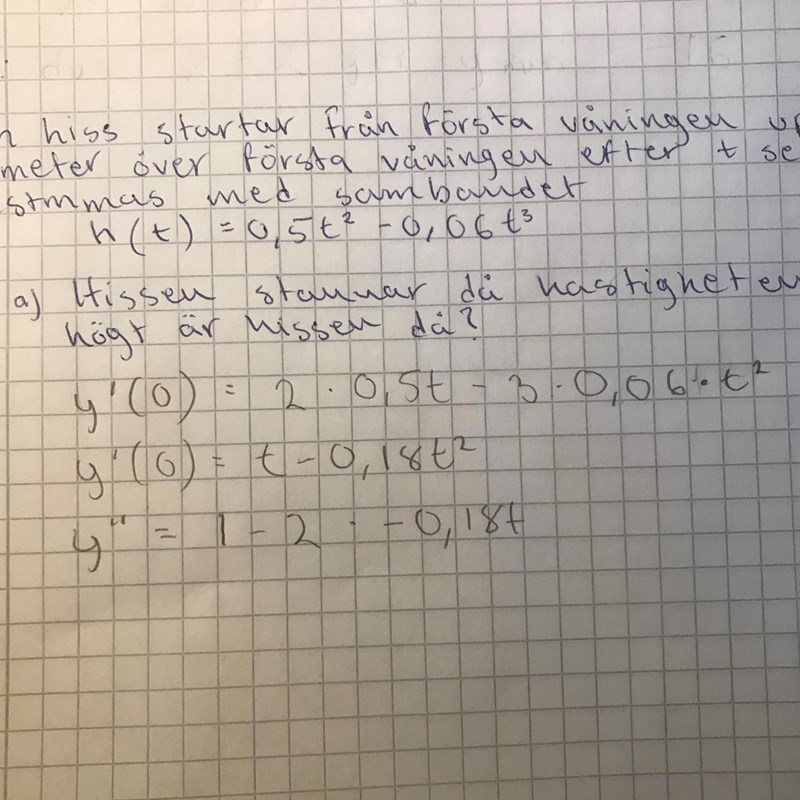 n hiss startar från första våningen up
meter över första våningen efter t se
stmmas med sambandet
h(t) = 0,5t² - 0,06t³
a) Hissen stannar då hastigheten
högt är hissen då?
y'(0) = 2 · 0,5t - 3 · 0,06 · t²
y'(0) = t - 0,18t²
y'' = 1 - 2 · -0,18t